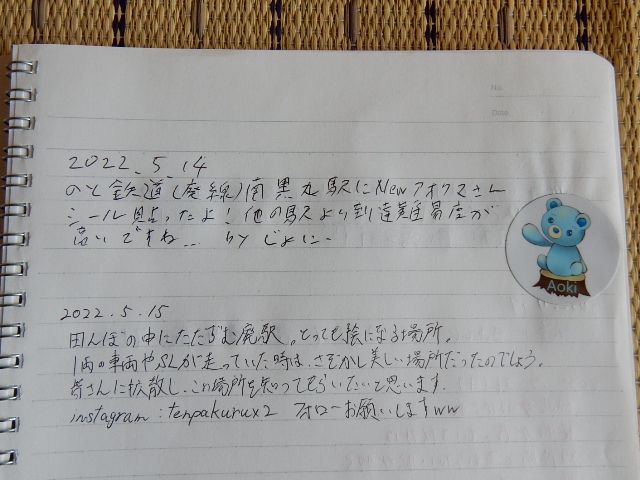 No.
Date
2022.5.14
のと鉄道(廃線)南黒丸駅にNew さん
シール貼ったよ!他の駅より到達難易度が
高いですね... by じょにー
Aoki
2022.5.15
田んぼの中にたたずむ廃駅。とっても絵になる場所。
1両の車両やSLが走っていた時は、さぞかし美しい場所だったのでしょう。
皆さんに拡散し、この場所を知ってもらいたいと思います。
instagram:tenpakurux2 フォローお願いしますww